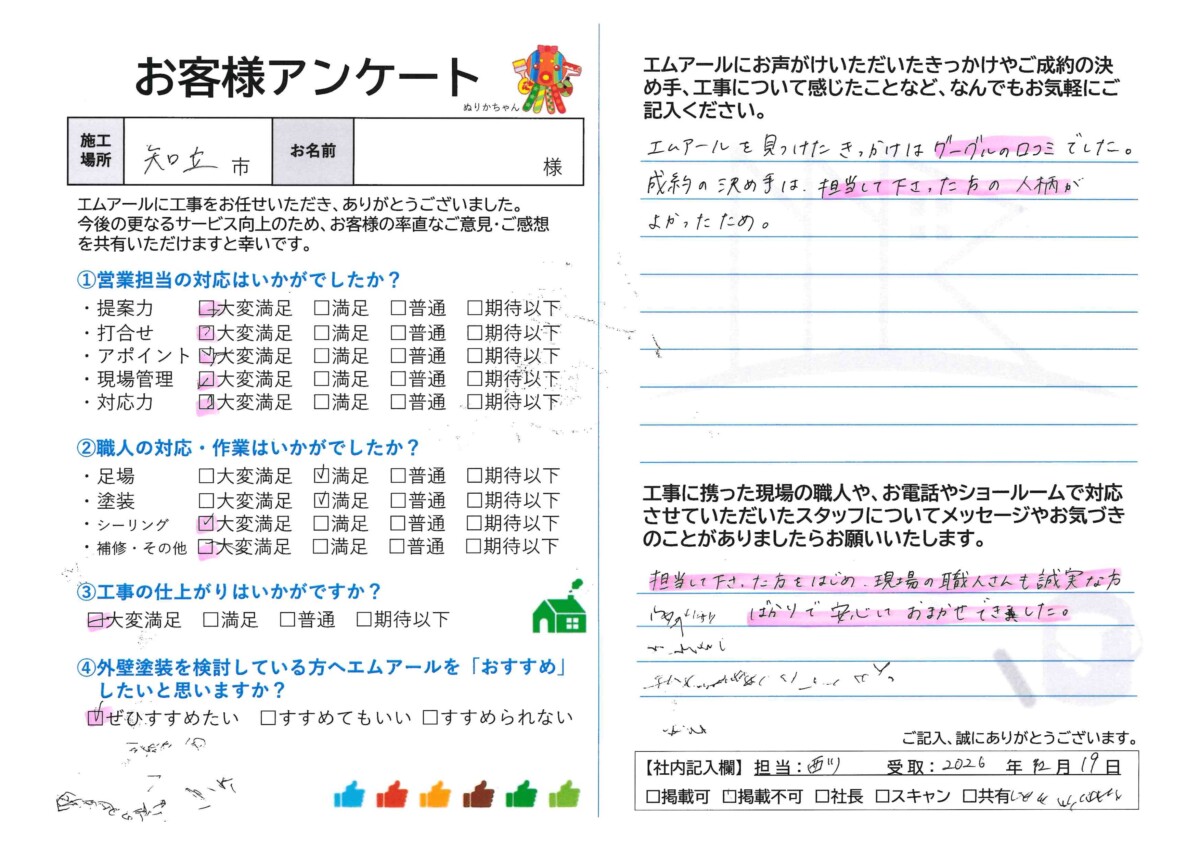 お客様アンケート
ぬりかちゃん
施工場所 知立 市 お名前 様
エムアールに工事をお任せいただき、ありがとうございました。
今後の更なるサービス向上のため、お客様の率直なご意見・ご感想
を共有いただけますと幸いです。
①営業担当の対応はいかがでしたか？
・提案力 ☑大変満足 □満足 □普通 □期待以下
・打合せ ☑大変満足 □満足 □普通 □期待以下
・アポイント ☑大変満足 □満足 □普通 □期待以下
・現場管理 ☑大変満足 □満足 □普通 □期待以下
・対応力 ☑大変満足 □満足 □普通 □期待以下
②職人の対応・作業はいかがでしたか？
・足場 □大変満足 ☑満足 □普通 □期待以下
・塗装 □大変満足 ☑満足 □普通 □期待以下
・シーリング ☑大変満足 □満足 □普通 □期待以下
・補修・その他 ☑大変満足 □満足 □普通 □期待以下
③工事の仕上がりはいかがですか？
☑大変満足 □満足 □普通 □期待以下
④外壁塗装を検討している方へエムアールを「おすすめ」
したいと思いますか？
☑ぜひすすめたい □すすめてもいい □すすめられない
エムアールにお声がけいただいたきっかけやご成約の決
め手、工事について感じたことなど、なんでもお気軽にご
記入ください。
エムアールを見つけたきっかけはグーグルの口コミでした。
成約の決め手は、担当して下さった方の人柄が
よかったため。
工事に携った現場の職人や、お電話やショールームで対応
させていただいたスタッフについてメッセージやお気づき
のことがありましたらお願いいたします。
担当して下さった方をはじめ、現場の職人さんも誠実な方
ばかりで安心しておまかせできました。
ご記入、誠にありがとうございます。
【社内記入欄】担当：西川 受取：2026 年 月 19 日
□掲載可 □掲載不可 □社長 □スキャン □共有